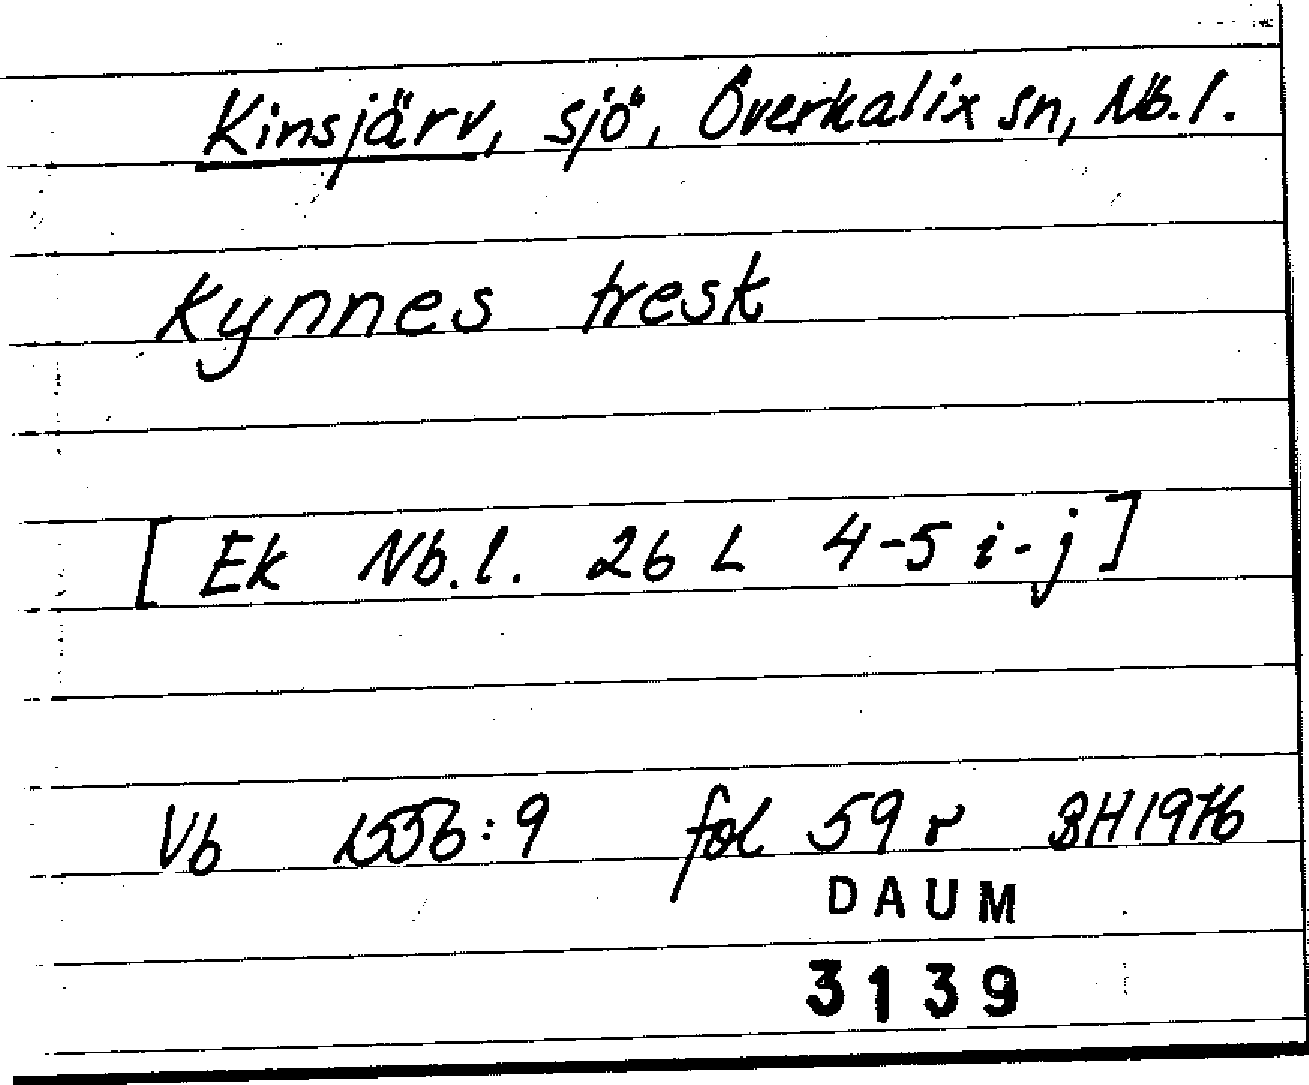 Kinsjärv, sjö, Överkalix sn, Nb.l.
Kynnes tresk
[Ek Nb.l. 26 L 4-5 i-j]
Vb 1556:9 fol 59 r BH1976
DAUM
3139